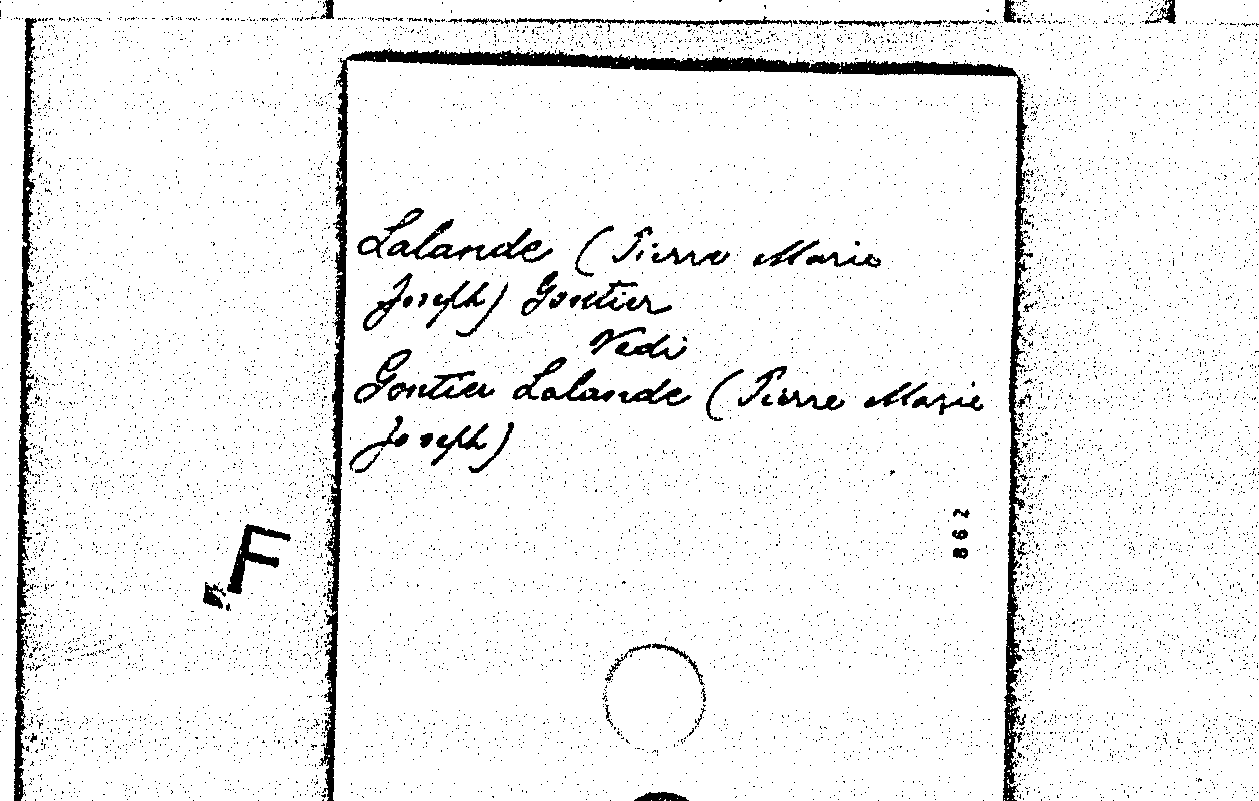 Lalande (Pierre Marie
Joseph) Gontier
Vedi
Gontier Lalande (Pierre Marie
Joseph)
862
F